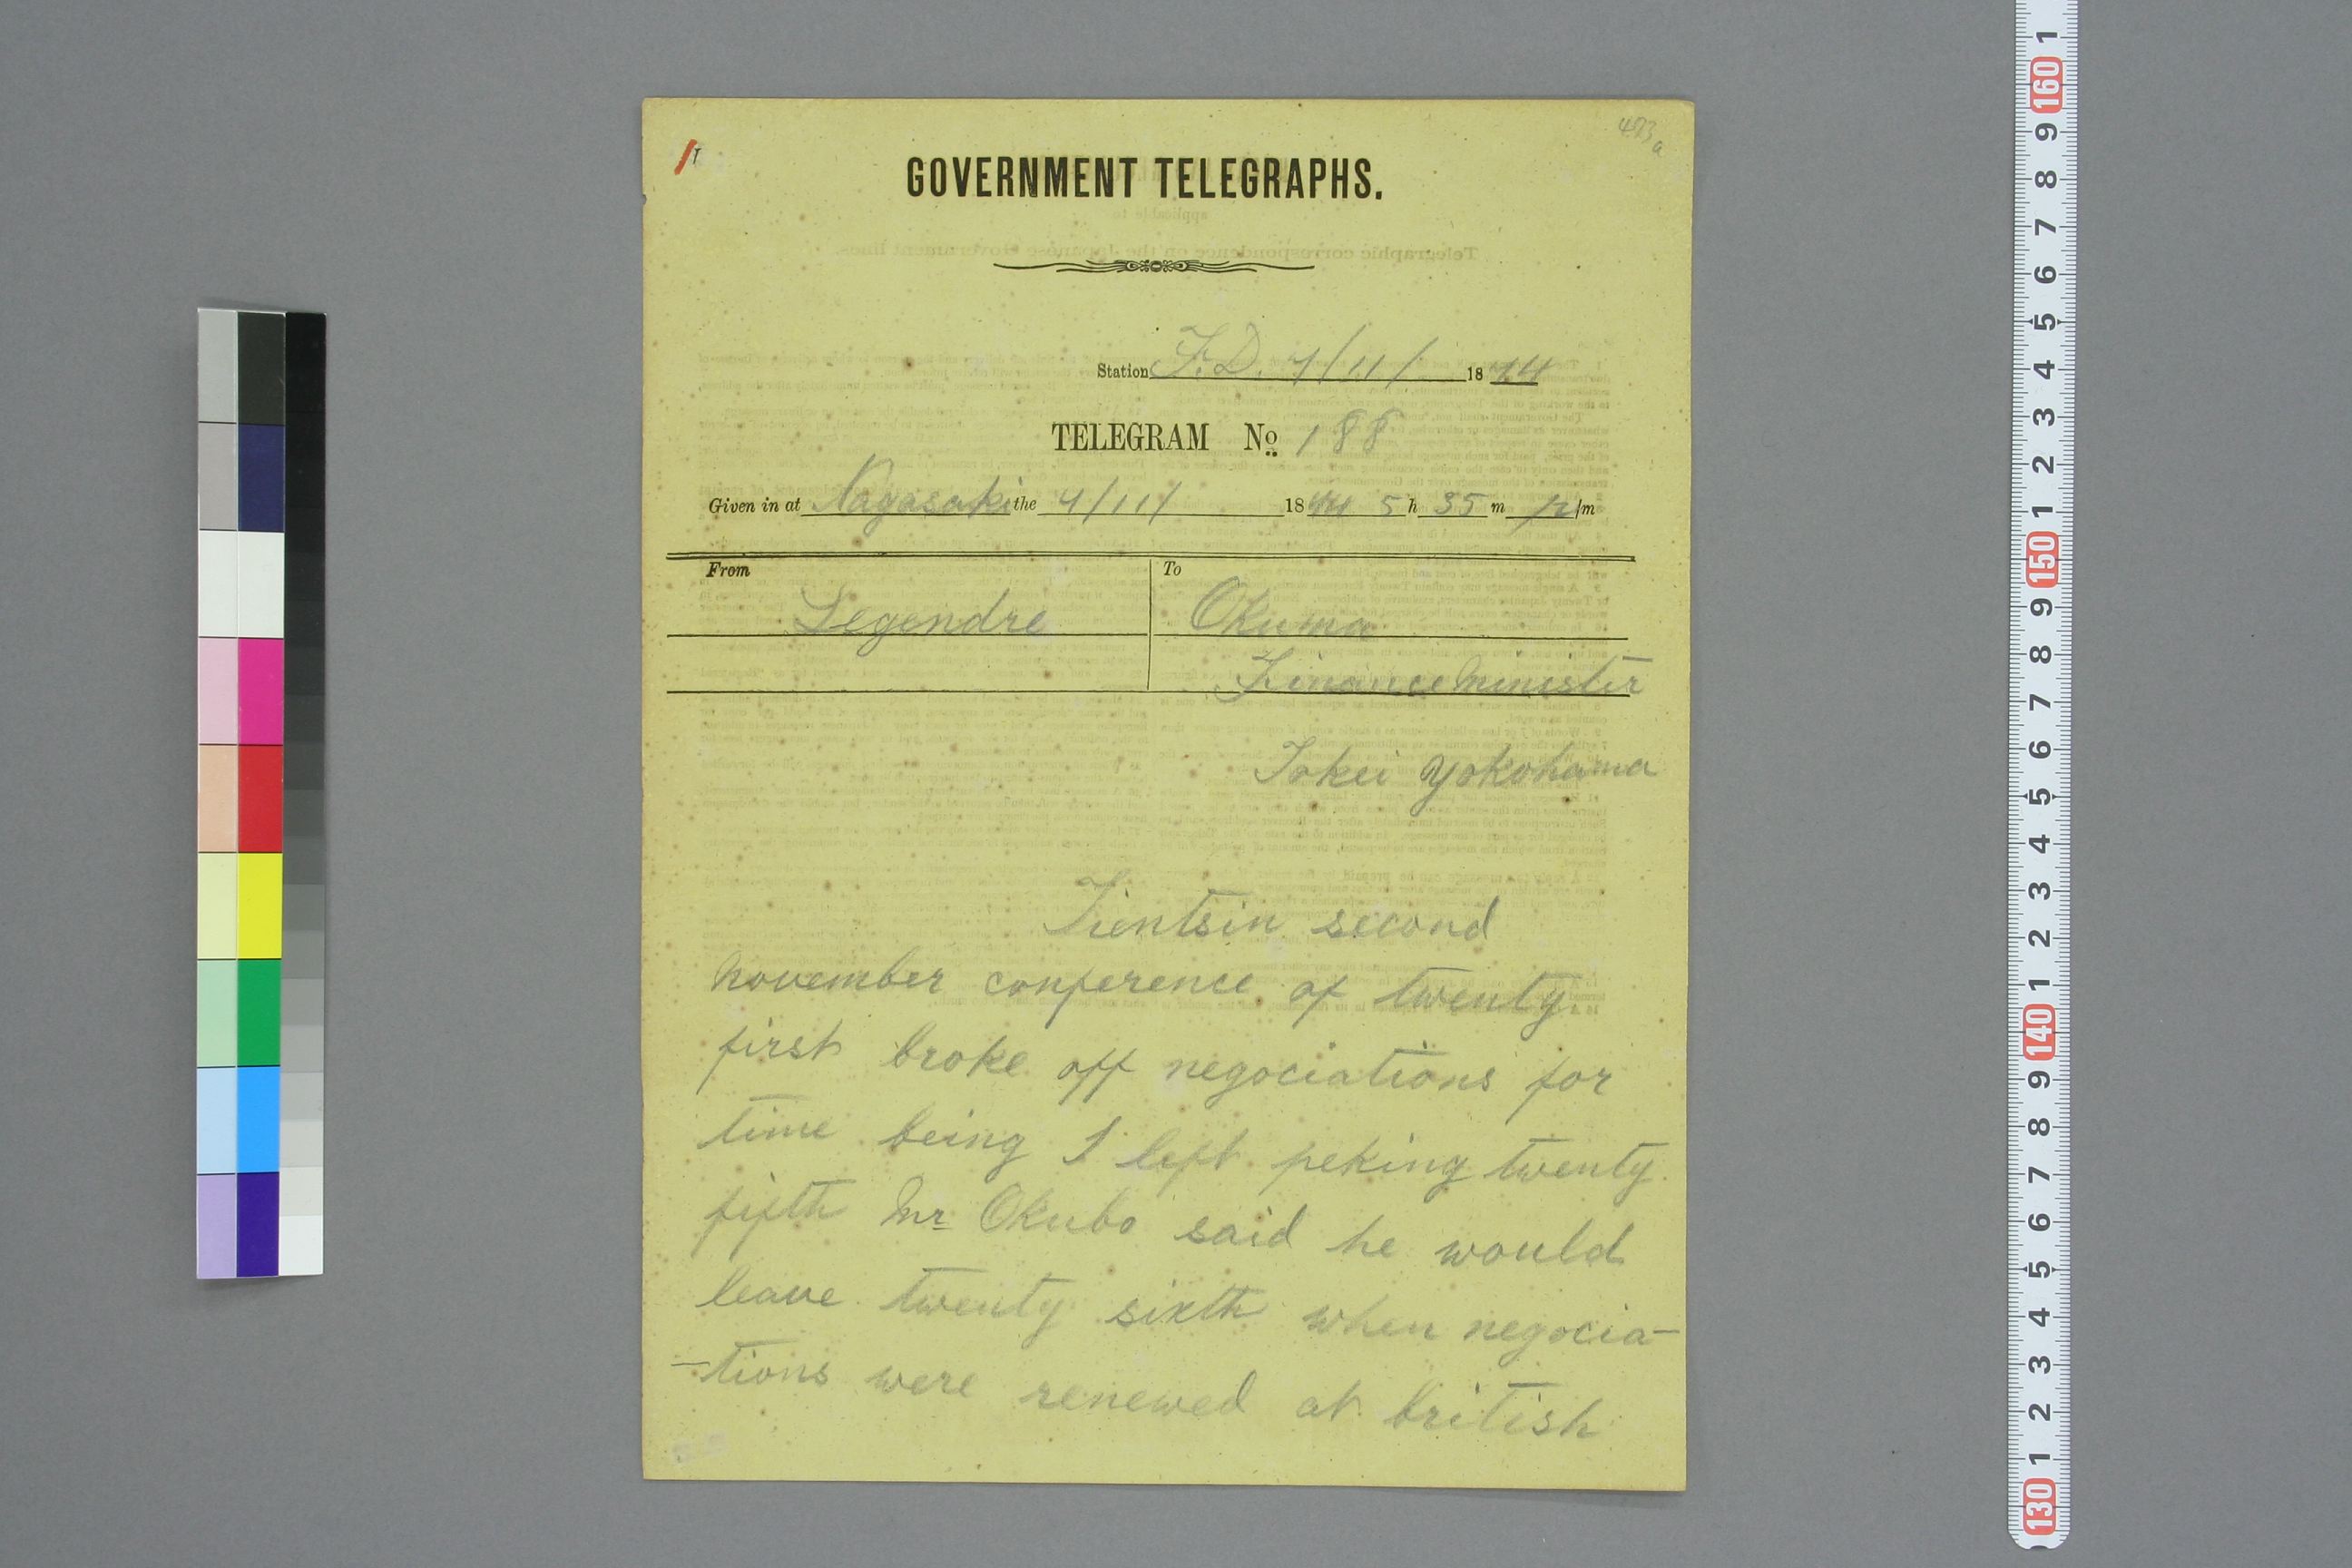 473a
1
GOVERNMENT TELEGRAPHS.
Station F.D. 7/11/ 1874
TELEGRAM No 188
Given in at Nagasaki the 7/11/ 1874 5 h 35 m P/m
From
To
Legendre
Okuma
Finance Minister
Tokei Yokohama
Tientsin second
november conference of twenty
first broke off negociations for
time being I left peking twenty
fifth Mr Okubo said he would
leave twenty sixth when negocia-
-tions were renewed at british
160
150
140
130